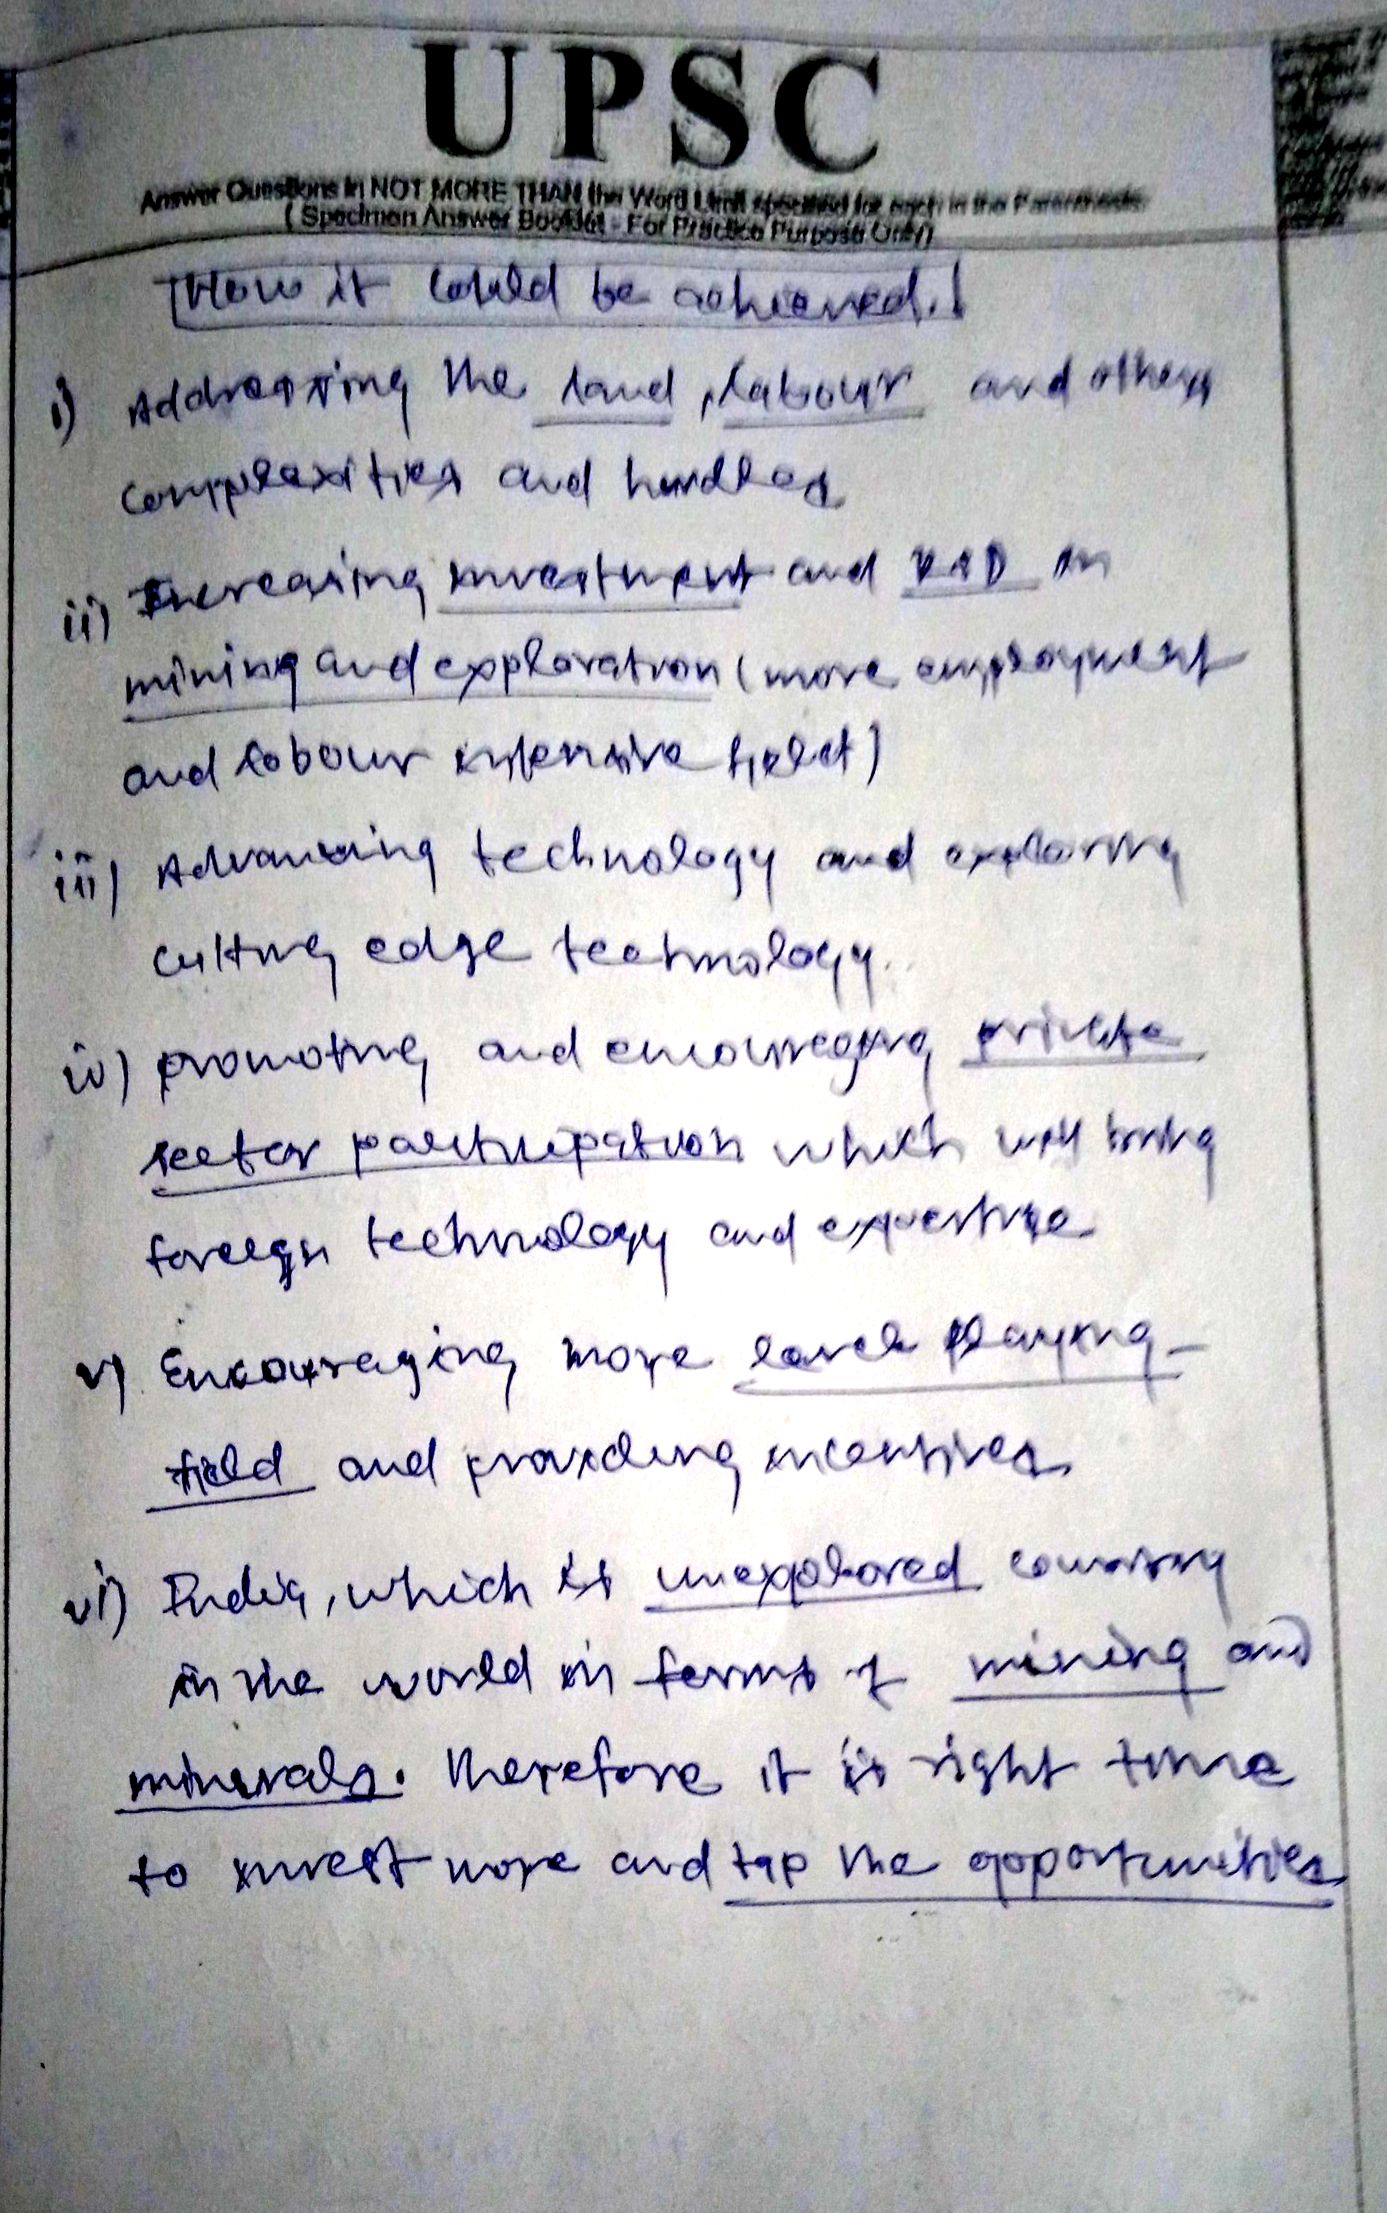 UPSC
Answer Questions in NOT MORE THAN the Word Limit specified for each in the Parenthesis.
( Specimen Answer Booklet - For Practice Purpose Only)
How it could be achieved.
i) Addressing the land, labour and others
complexities and hurdles
ii) Increasing investment and R&D in
mining and exploration (more employment
and labour intensive field)
iii) Advancing technology and exploring
cutting edge technology.
iv) promoting and encouraging private
sector participation which will bring
foreign technology and expertise
v) Encouraging more level playing-
field and providing incentives.
vi) India, which is unexplored country
in the world in terms of mining and
minerals. Therefore it is right time
to invest more and tap the opportunities